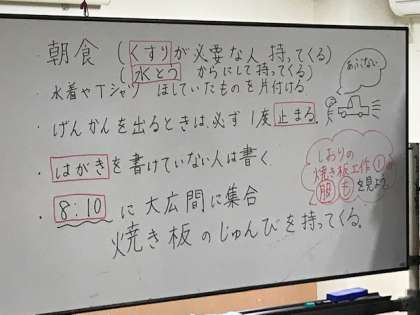 ・朝食 (くすりが必要な人 持ってくる)
(水とう からにして持ってくる)
・水着やTシャツ ほしていたものを片付ける
・げんかんを出るときは、必ず1度止まる。
・はがきを書けていない人は書く。
・8:10 に大広間に集合
焼き板のじゅんびを持ってくる。
あぶない
しおりの
焼き板工作①
も見よう